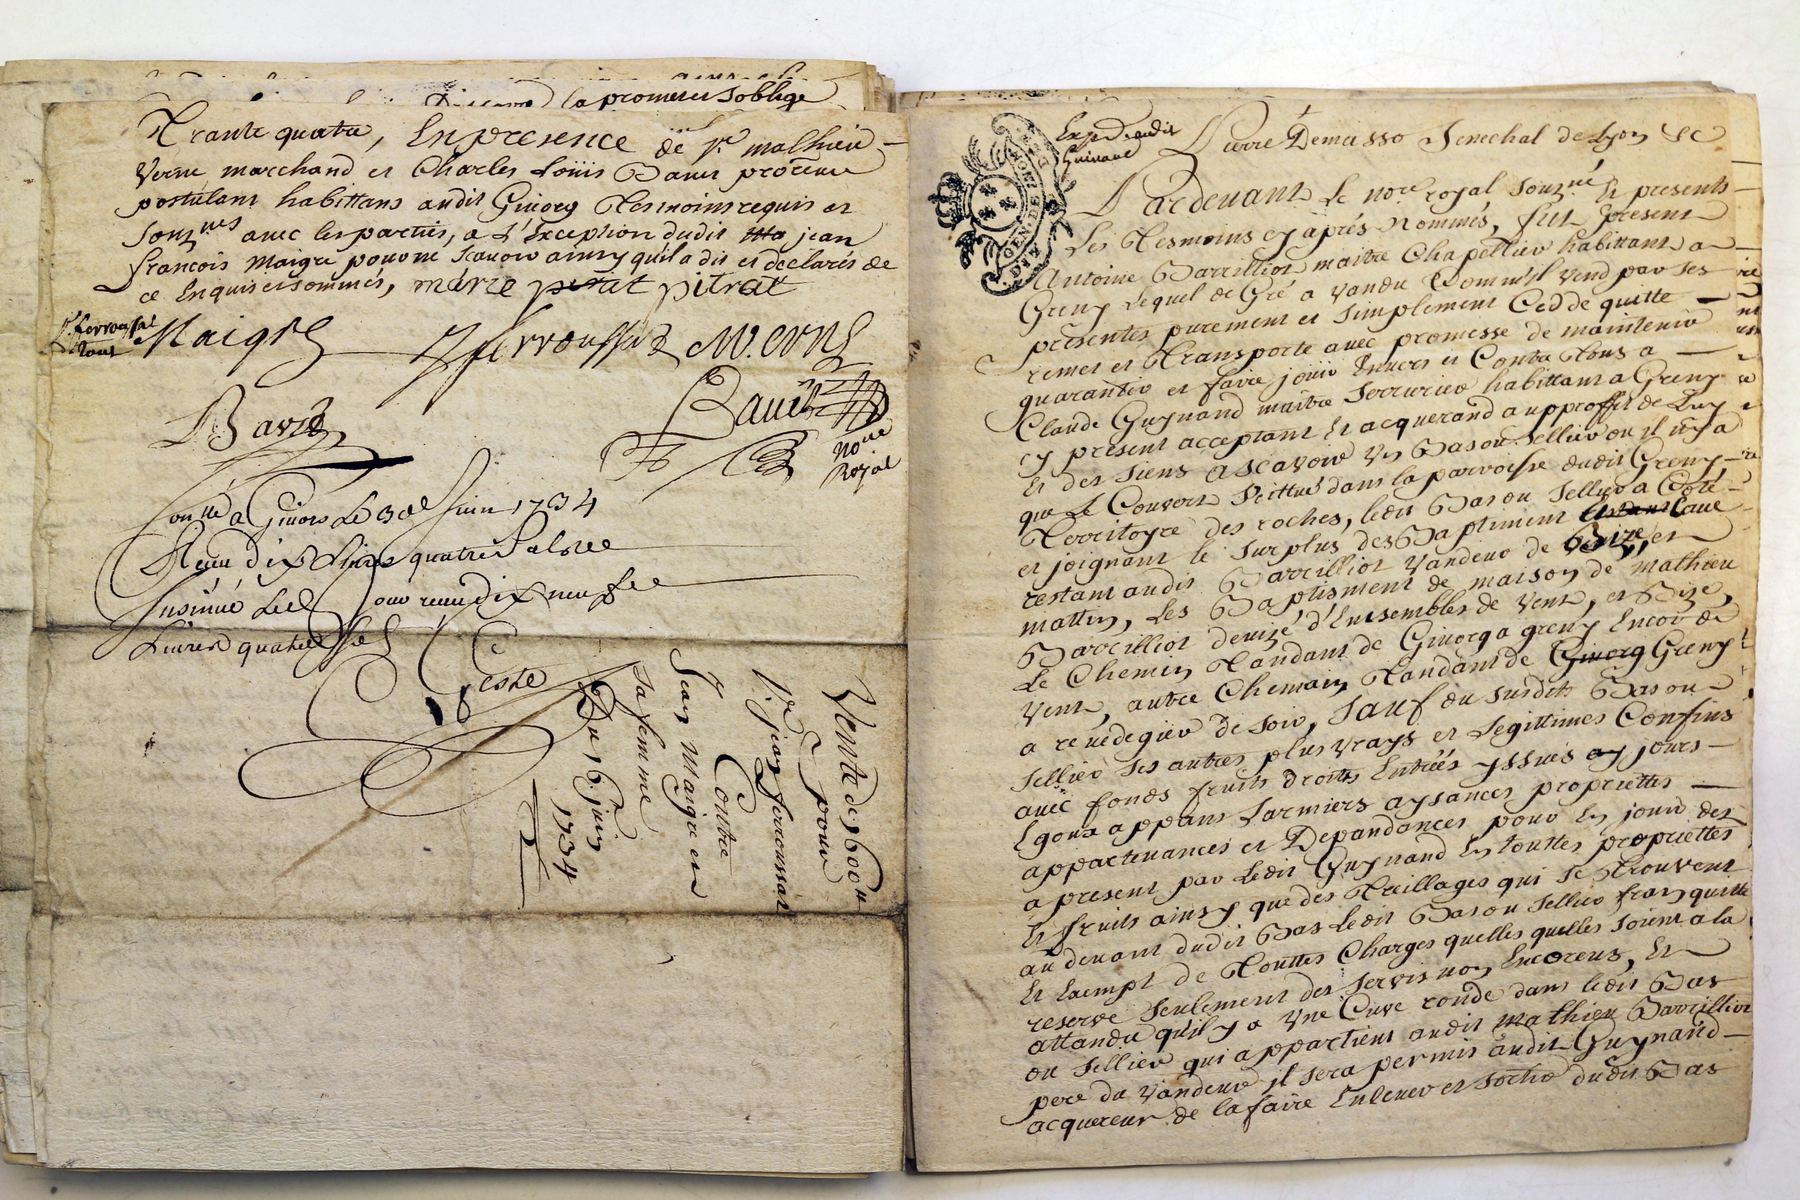 la promet et s'oblige
Trante quatre, En presence de Sr. mathieu
Verne marchand et Charles Loüis Bavet
postulant habittans audit Givorg Tesmoins requis et
Souznes avec les parties, a L'Exception dudit jean
francois maigre pour ne scavoir ainsy qu'il a dit et declaré de
ce Enquis et sommés, marie petit pitrat
ferroussat Maigre ferroussat M. Verne
Bavet
No.re
Royal
a Givors Le 30e Juin 1734
Recu dix Livres quatre
Insinüé Led. Jour recu dix neuf
Livres quatre
Teste
Vente de 1600 tt
pour
Sr. jean ferroussat
Contre
Jean Maigre et
sa femme
Du 16 juin
1734
Exp.
audit
Guinand
GEN DE LYON
Pierre Demasso Senechal de Lyon
Pardevant Le no.re royal souz.né Et presents
Les Tesmoins cy aprés Nommés, fut present
Antoine Barrilliot maitre Chapellier habittant a
Greny Lequel de Gré a vandu Comm'il vend par ses
presentes purement et simplement Cedde quitte
remet et Transporte avec promesse de maintenir
guarantir et faire jouir Envers et Contre Tous a
Claude Guynand maitre Serrurier habittant a Greny
cy present acceptant et acquerand au proffit de Luy
Et des siens A scavoir Un Bas ou Sellier ou il n'y a
que Le Couvert Scittué dans la parroisse dudit Greny
Territoyre des roches, ledit Bas ou Sellier a Coté
et joignant le surplus des Baptiment
restant audit Barrilliot Vandeur de Bize, et
mattin, Les Baptisment de maison de mathieu
Barrilliot d'Ensembles de vent, et Bize,
Le Chemin Tandant de Givorg a greny Encor de
vent, autre Chemain Tandant de Givorg Greny
a de soir, Sauf du susdit Bas ou
Sellier ses autres plus vrays et Legittimes Confins
avec fonds fruits droits Entrées yssües jours
Egoux appans Larmiers aysances proprietes
appartenances et Dependances pour En jouir des
a present par Ledit Guynand En touttes propriettés
Et fruits ainsy que des Treillages qui se Trouvent
au devant dudit Bas Ledit Bas ou Sellier franq quitte
Et Exempt de Touttes Charges quelles quelles soient a la
reserve seulement des servis non Encoreus, Et
attandu qu'il y a Une Cuve ronde dans ledit Bas
ou Sellier qui appartient audit mathieu Barrilliot
pere du Vandeur il sera permis audit Guynand
acquereur de la faire Enlever et sortir dudit Bas